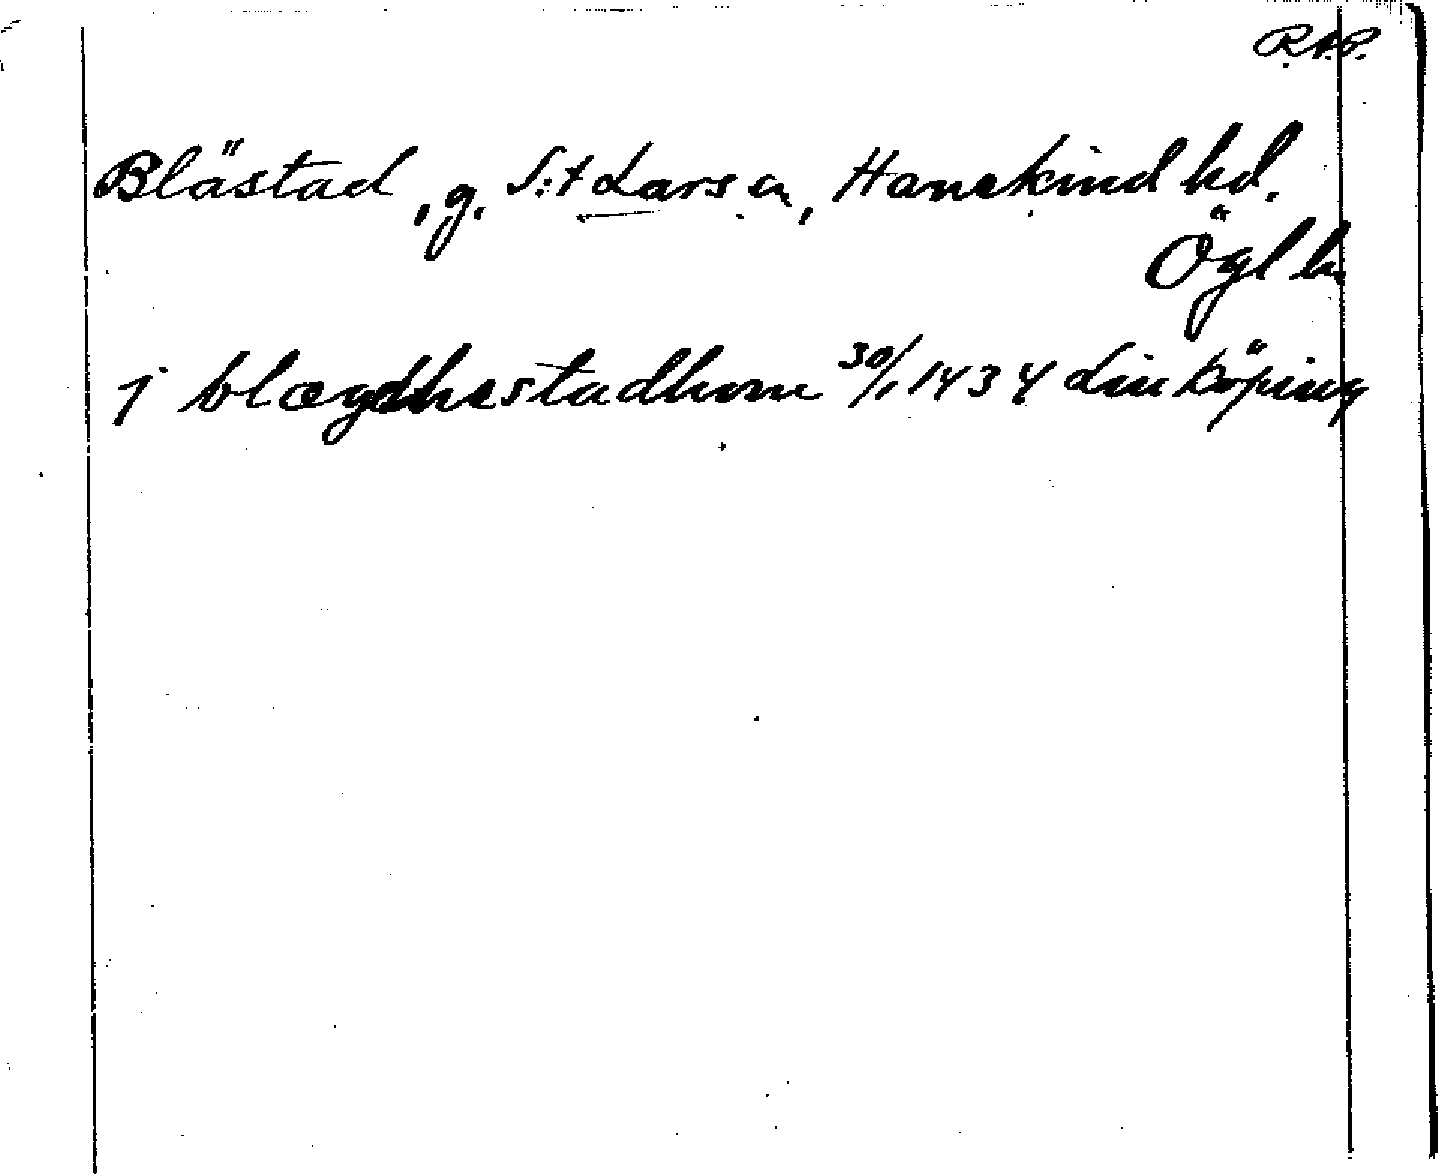 R.A.P.
Blästad, g. S:t Lars sn, Hanekind hd.
Ögl ln
j blægdhestadhom 30/1 1434 Linköping